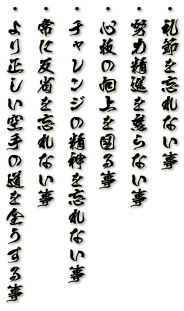 ・礼節を忘れない事
・努力精進を怠らない事
・心技の向上を図る事
・チャレンジの精神を忘れない事
・常に反省を忘れない事
・より正しい空手の道を全うする事